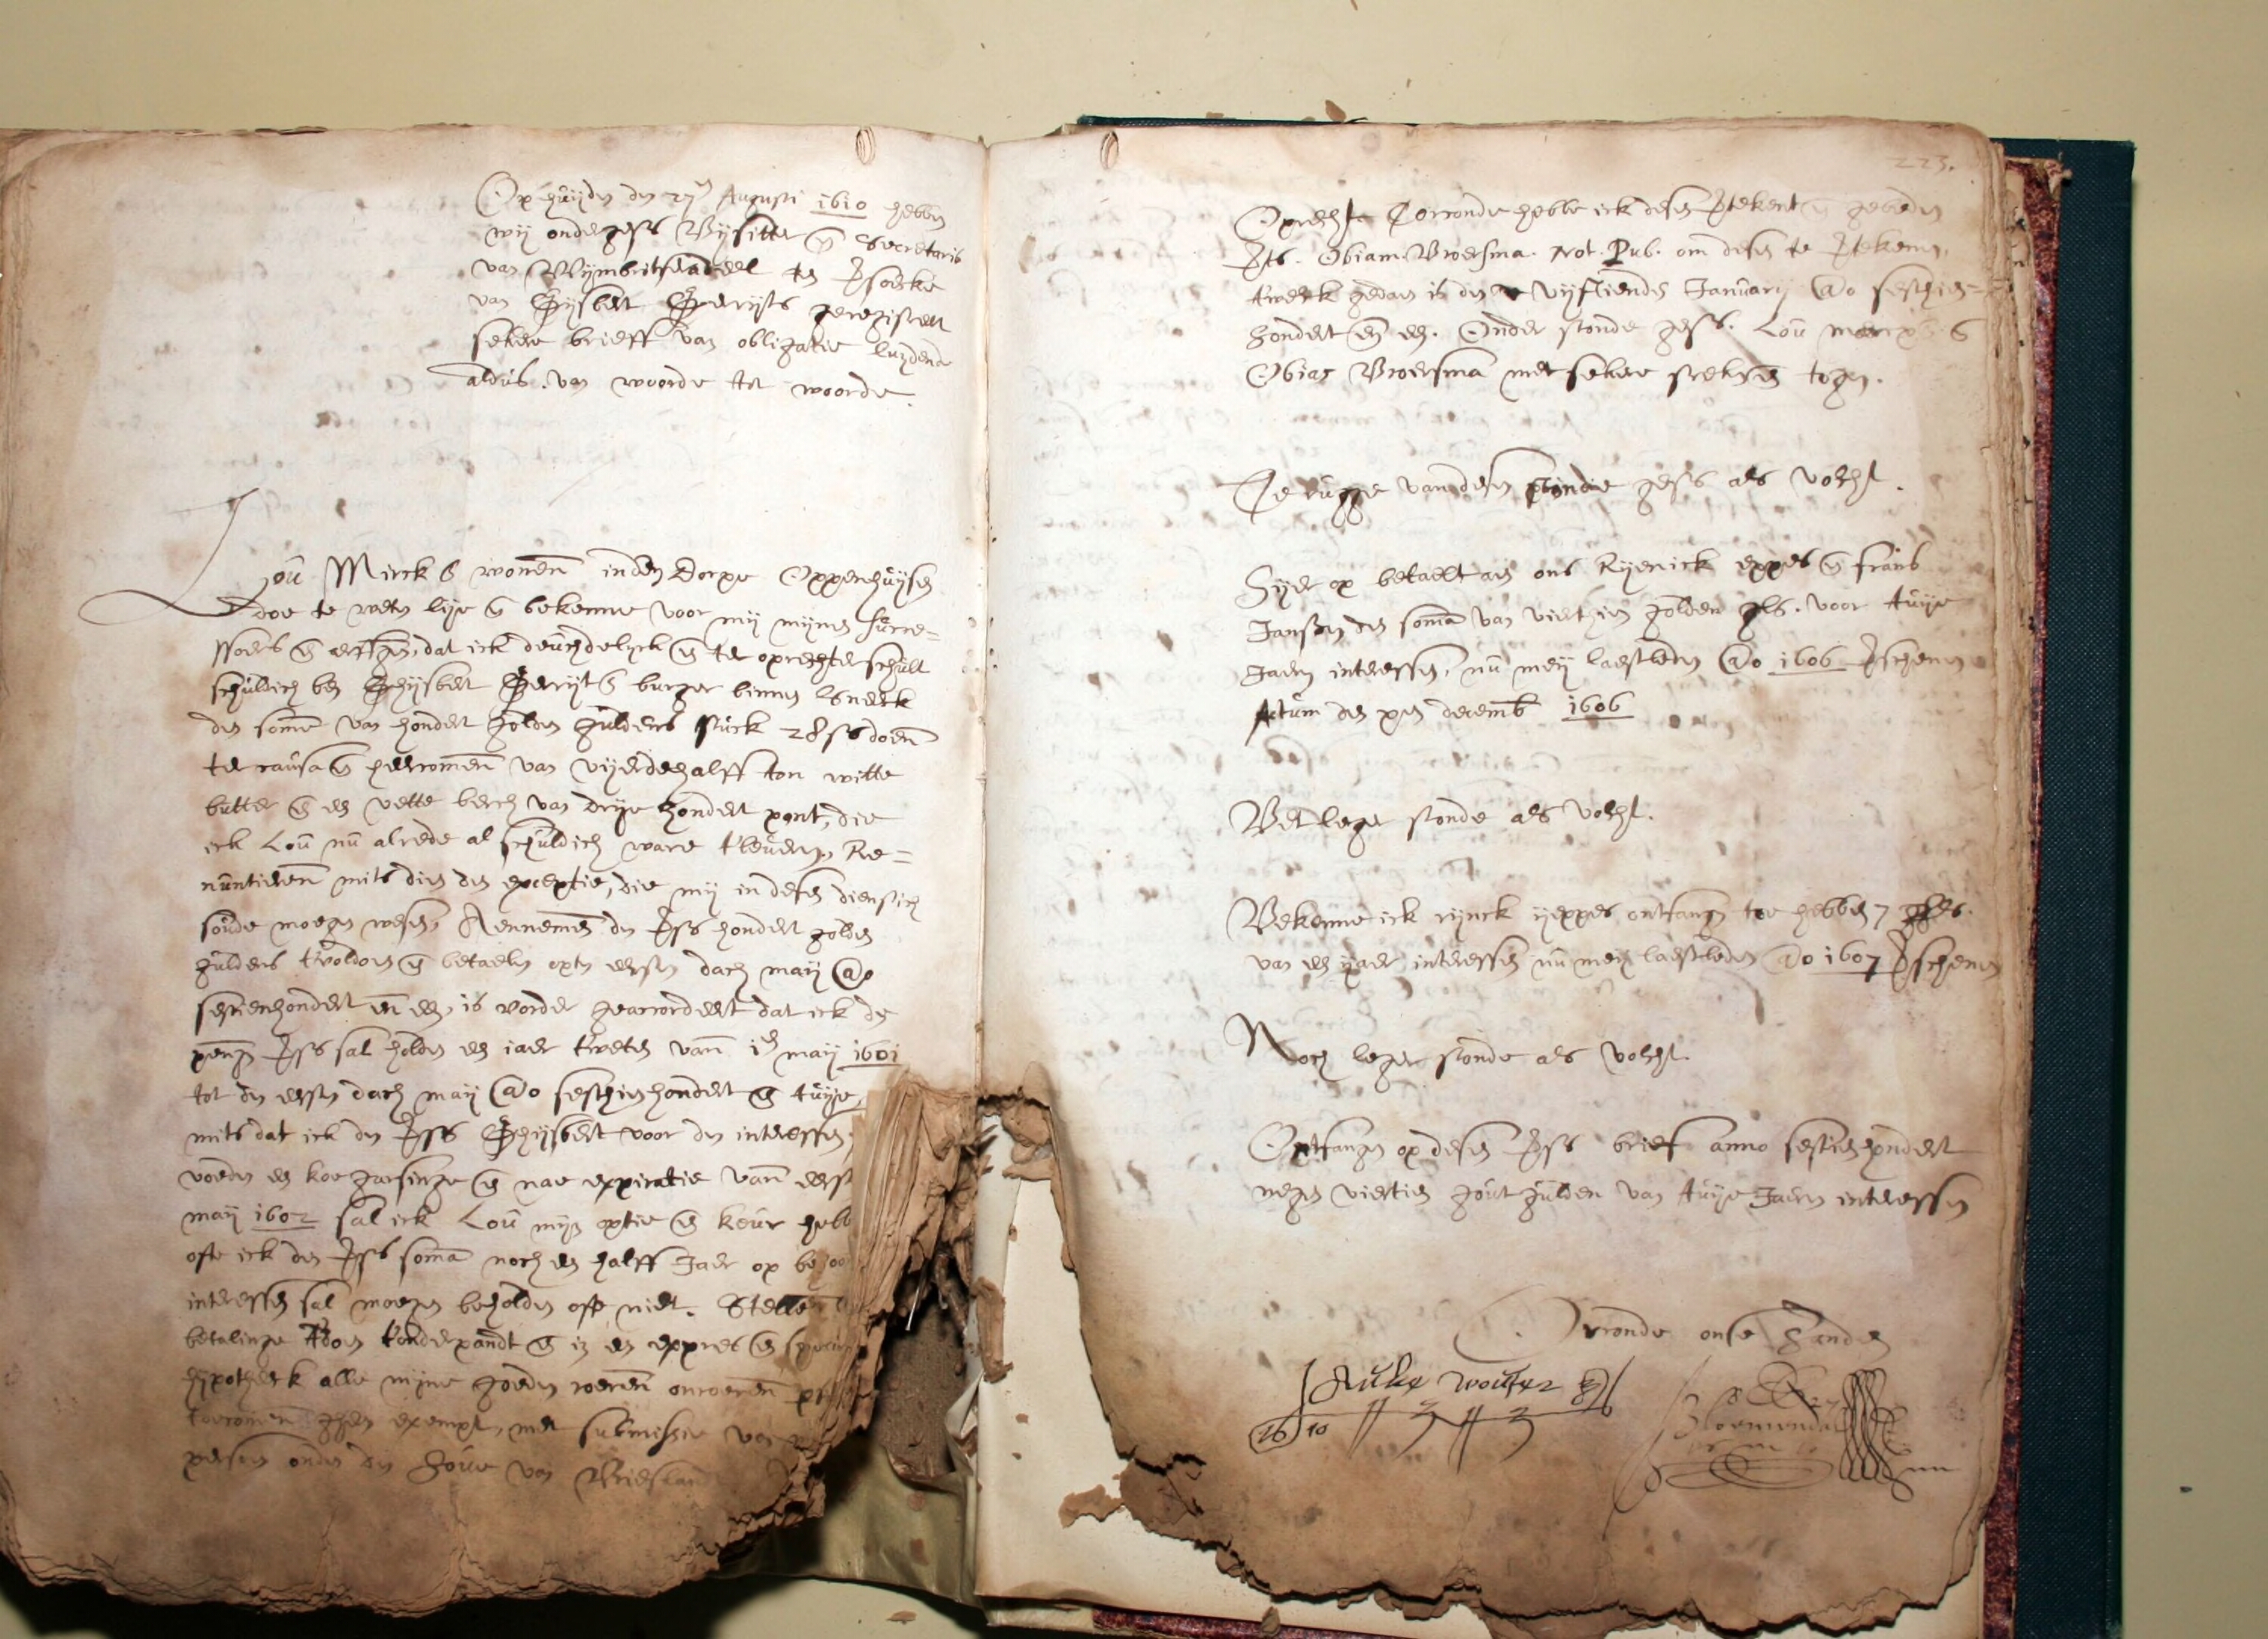 Op huijden den 27en Augusti 1610 hebben
wij ondergess Bijsitter en Secretaris
van Wijmbritseradeel ten versoecke
van Gijsbert Gerrijts geregistreert
sekere brieff van obligatie luijdende
aldus. van woorde tot woorde.
Lou Mircks wonen inden Dorpe Oppenhuijsen
doe te weten lije en bekenne voor mij mijnen succe=
ssoers en erffgen, dat ick deuchdelyck en ter oprechter schult
schuldich ben Ghijsbert Gerrijts burger binnen Sneeck
den some van hondert golden guldens stuck 28 ss doen
ter causa en hercomen van vijerdehalff ton witte
butter en een vette berch van drije hondert pont, die
ick Lou nu alrede al schuldich ware t'leveren, Re=
nuntieren mits dien den exceptie, die mij in desen dienstich
soude moegen wesen, Aennemen den vss hondert golden
guldens t'voldoen en betaelen opten eersten dach maij Ao
sestienhondert en een, is vorder geaccordeert dat ick de
peng vss sal holden een iaer t'weten van 1en maij 1601
tot den eersten dach maij Ao sesthienhondert en tuije,
mits dat ick den vss Ghijsbert voor den interessen
voeden een koe garsinge en nae expiratie van eerst
maij 1602 sal ick Lou mijn optie en keur hebb
ofte ick den vss soma noch een halff Jaer op be
interessen sal moegen beholden ofte niet. Stellen
betalinge t'doen t'onderpandt en in een expres en speciae
hijpotheeck alle mijne goeden roeren onroeren
toecomen gheen exempt, met submissie van
persoen onder den Hove van Vrieslandt
223.
Oprechte Oirconde hebbe ick desen vtekent en gebeden
Obiam Broersma. Not. Pub. om desen te vtekenen,
twelck gedaen is den vijftiende Januarij Ao sesthien=
hondert en een. Onder stonde gess. Lou
Obias Broersma met sekere streken en togen.
Te rugge van desen stonde gess als volcht.
Hijer op betaelt aen ons Rijenick eppes en frans
Janssen den soma van vierthien golden gls. voor tuije
Jaeren interessen, nu meij laestleden Ao 1606 vschenen
Actum den xen decemb 1606
Wet leger stonde als volcht.
Bekenne ick rijnck ijeppes ontfangen toe hebben 7 ggls.
van een ijaer interessen nu meij laestleden Ao 1607 vschenen
Noch leger stonde als volcht.
Ontfangen op desen vss brief anno sestien hondert
negen viertien gout gulden van tuije Jaeren interessen
Oirconde onse handen
Auke Wouter
16 10